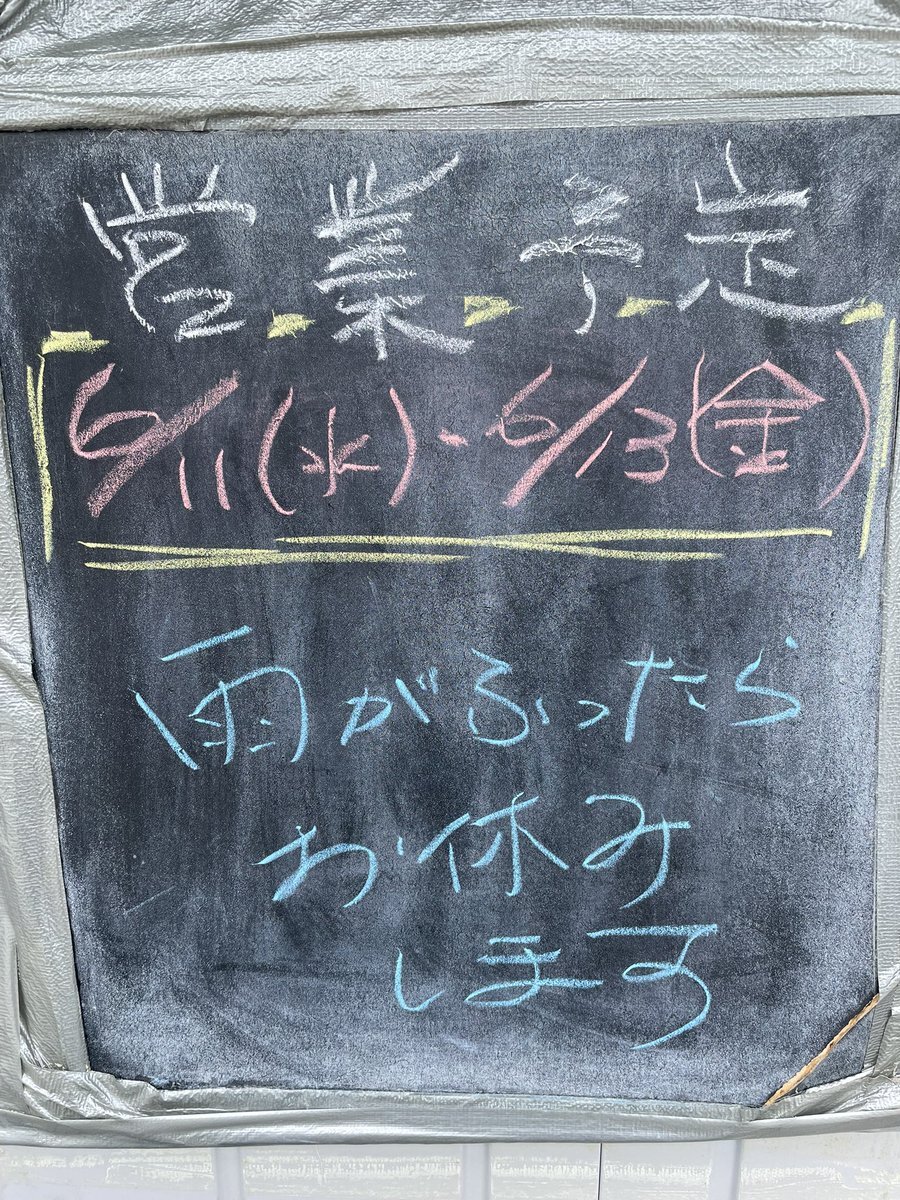 営業予定
6/11(水)-6/13(金)
雨がふったら
お休み
します